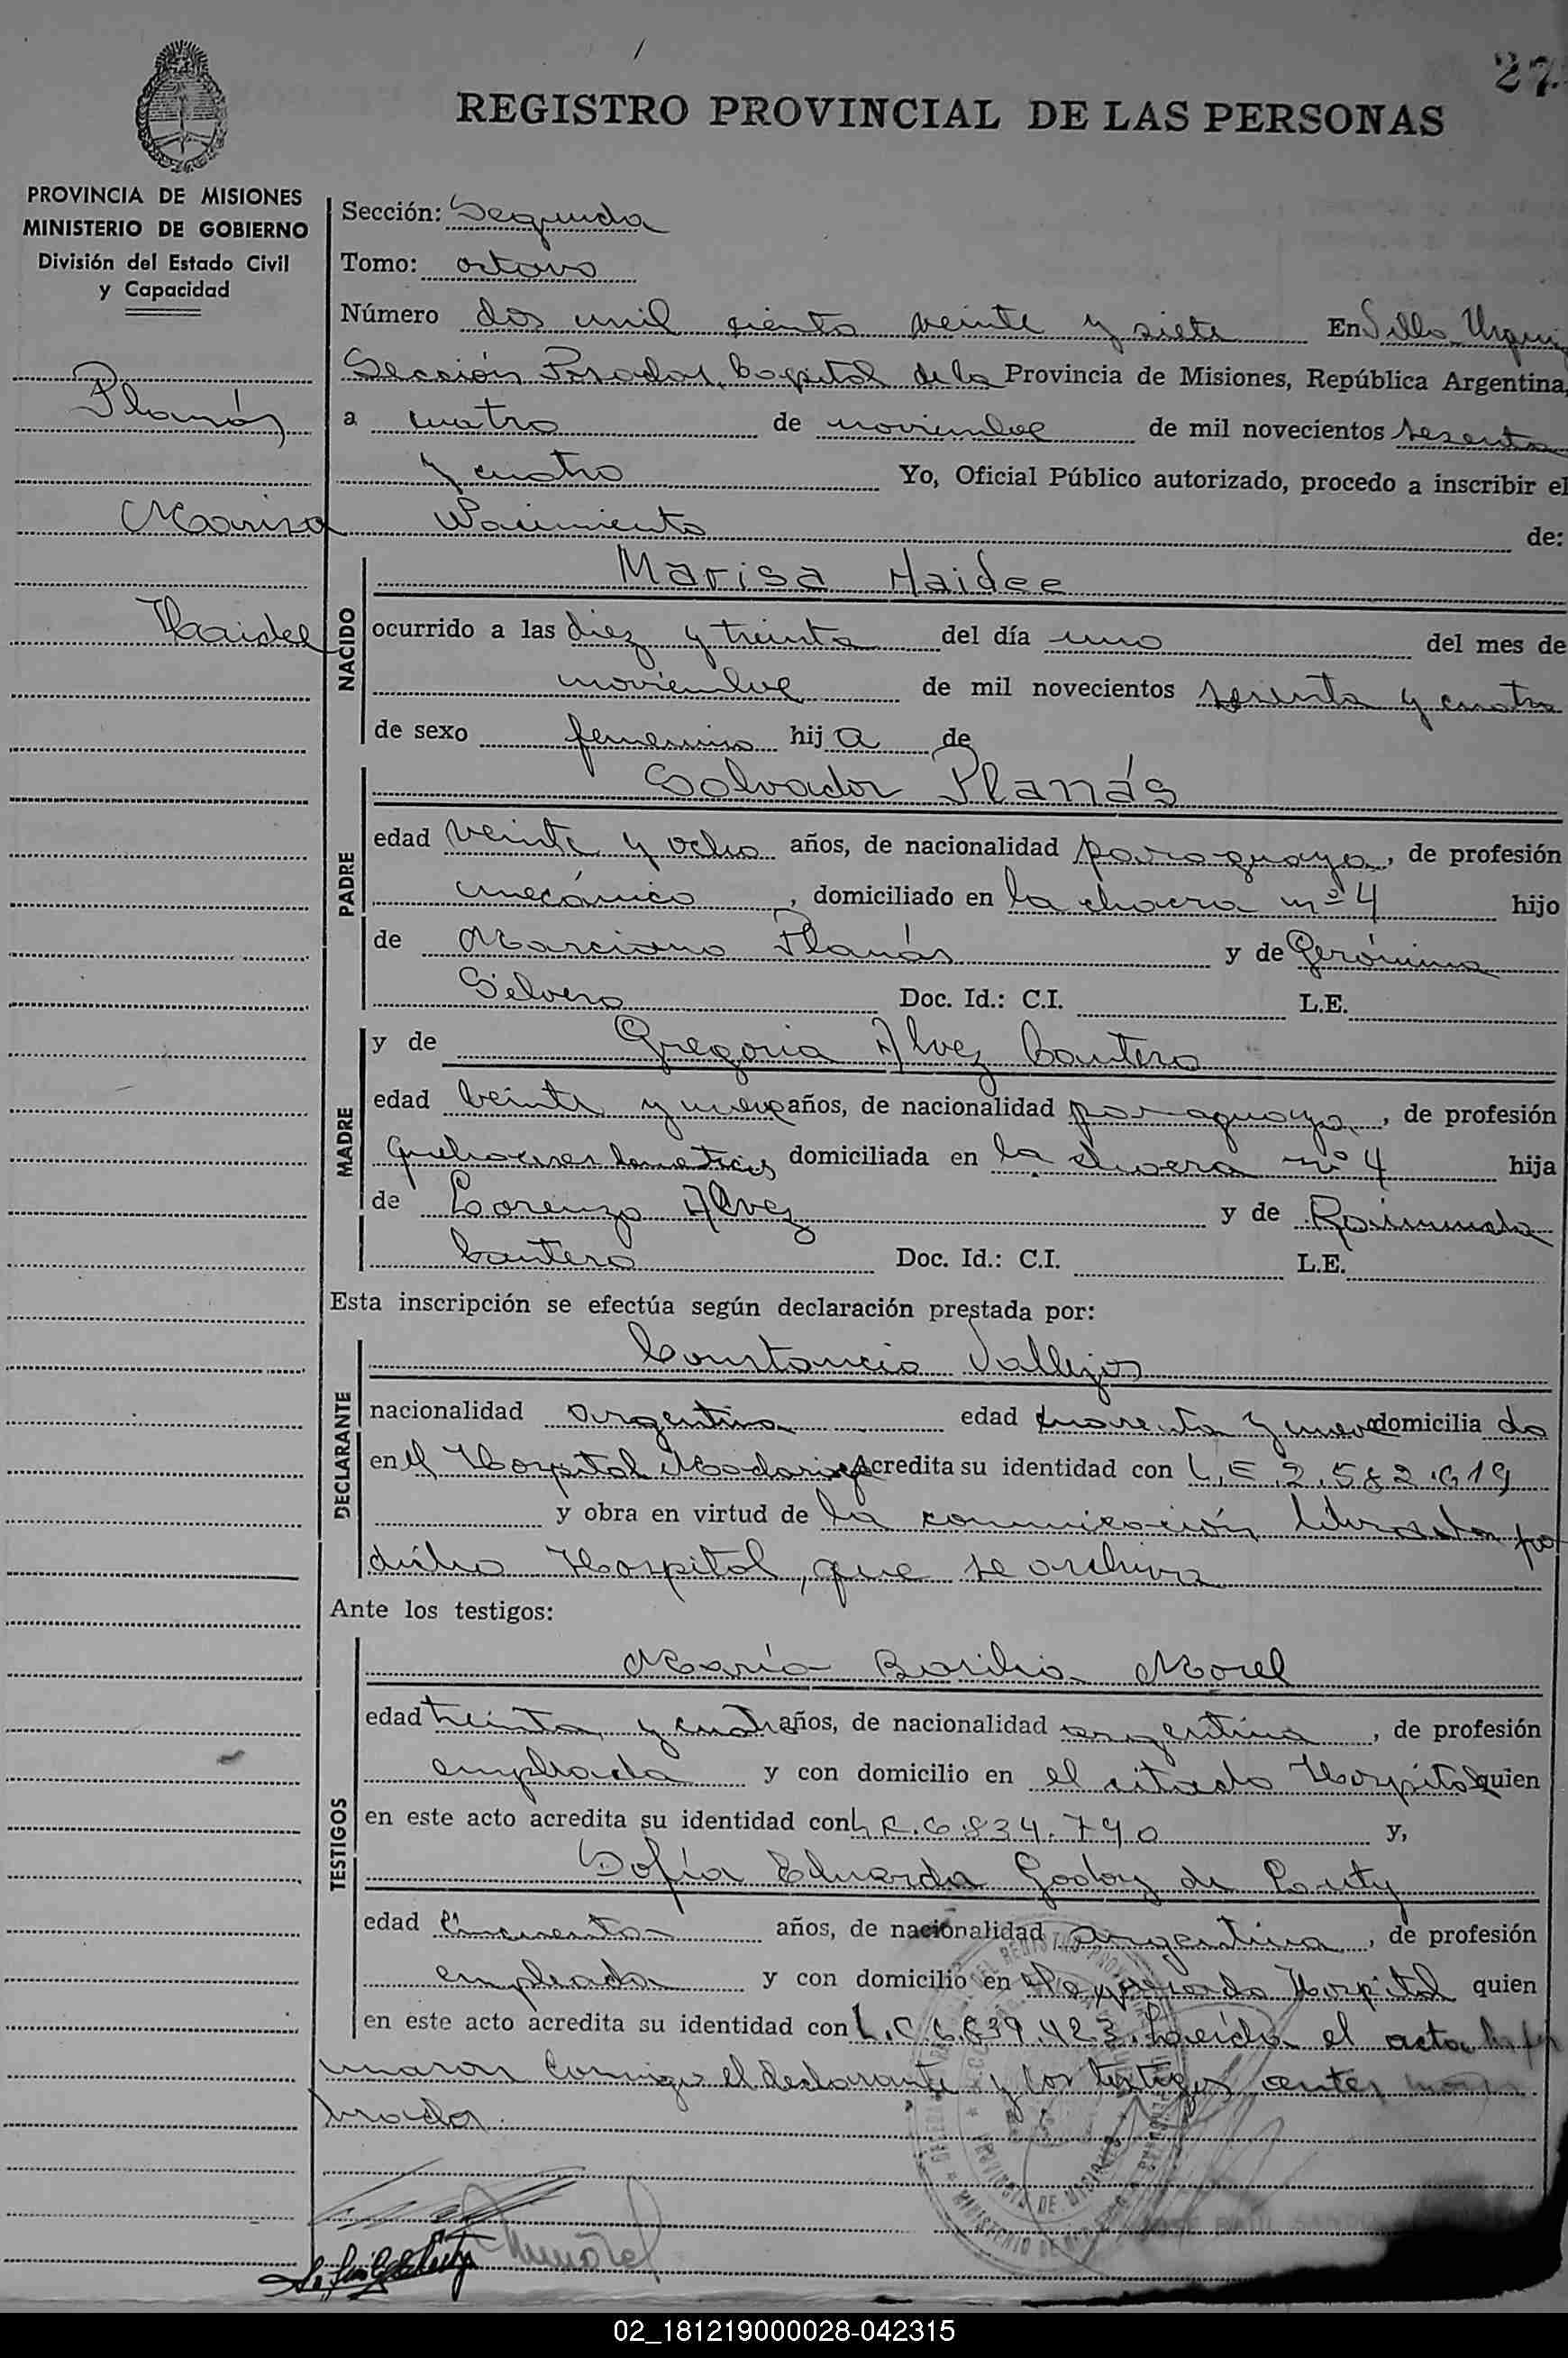 27
REGISTRO PROVINCIAL DE LAS PERSONAS
PROVINCIA DE MISIONES
MINISTERIO DE GOBIERNO
División del Estado Civil
y Capacidad
Planás
Marisa
Haidee
Sección: Segunda
Tomo: octavo
Número dos mil ciento veinte y siete En Villa Urqui
Sección Posadas, Capital de la Provincia de Misiones, República Argentina,
a cuatro de noviembre de mil novecientos sesenta
y cuatro Yo, Oficial Público autorizado, procedo a inscribir el
Nacimiento de:
NACIDO
Marisa Haidee
ocurrido a las diez y treinta del día uno del mes de
noviembre de mil novecientos sesenta y cuatro
de sexo femenino hija de
PADRE
Salvador Planás
edad veinte y ocho años, de nacionalidad paraguaya, de profesión
mecánico, domiciliado en la chacra nº 4 hijo
de Marciano Planás y de Gerónima
Silvero Doc. Id.: C.I. L.E.
MADRE
y de Gregoria Alvez Cantero
edad veinte y nueve años, de nacionalidad paraguaya, de profesión
quehaceres domesticos domiciliada en la chacra nº 4 hija
de Lorenzo Alvez y de Raimunda
Cantero Doc. Id.: C.I. L.E.
Esta inscripción se efectúa según declaración prestada por:
DECLARANTE
Constancio Vallejos
nacionalidad argentina edad cuarenta y nueve domicilia do
en el Hospital Madariaga Acredita su identidad con L.E. 2.582.619
y obra en virtud de la comunicación librada por
dicho Hospital, que se archiva
Ante los testigos:
TESTIGOS
María Basilia Morel
edad treinta y cuatro años, de nacionalidad argentina, de profesión
empleada y con domicilio en el citado Hospital quien
en este acto acredita su identidad con L.C. 6.834.790 y,
Sofía Eduarda Godoy de Luty
edad cincuenta años, de nacionalidad argentina, de profesión
empleada y con domicilio en el expresado Hospital quien
en este acto acredita su identidad con L.C. 6.839.423. Leída el acta la fir
maron conmigo el declarante y los testigos antes nom
brados.
02_181219000028-042315